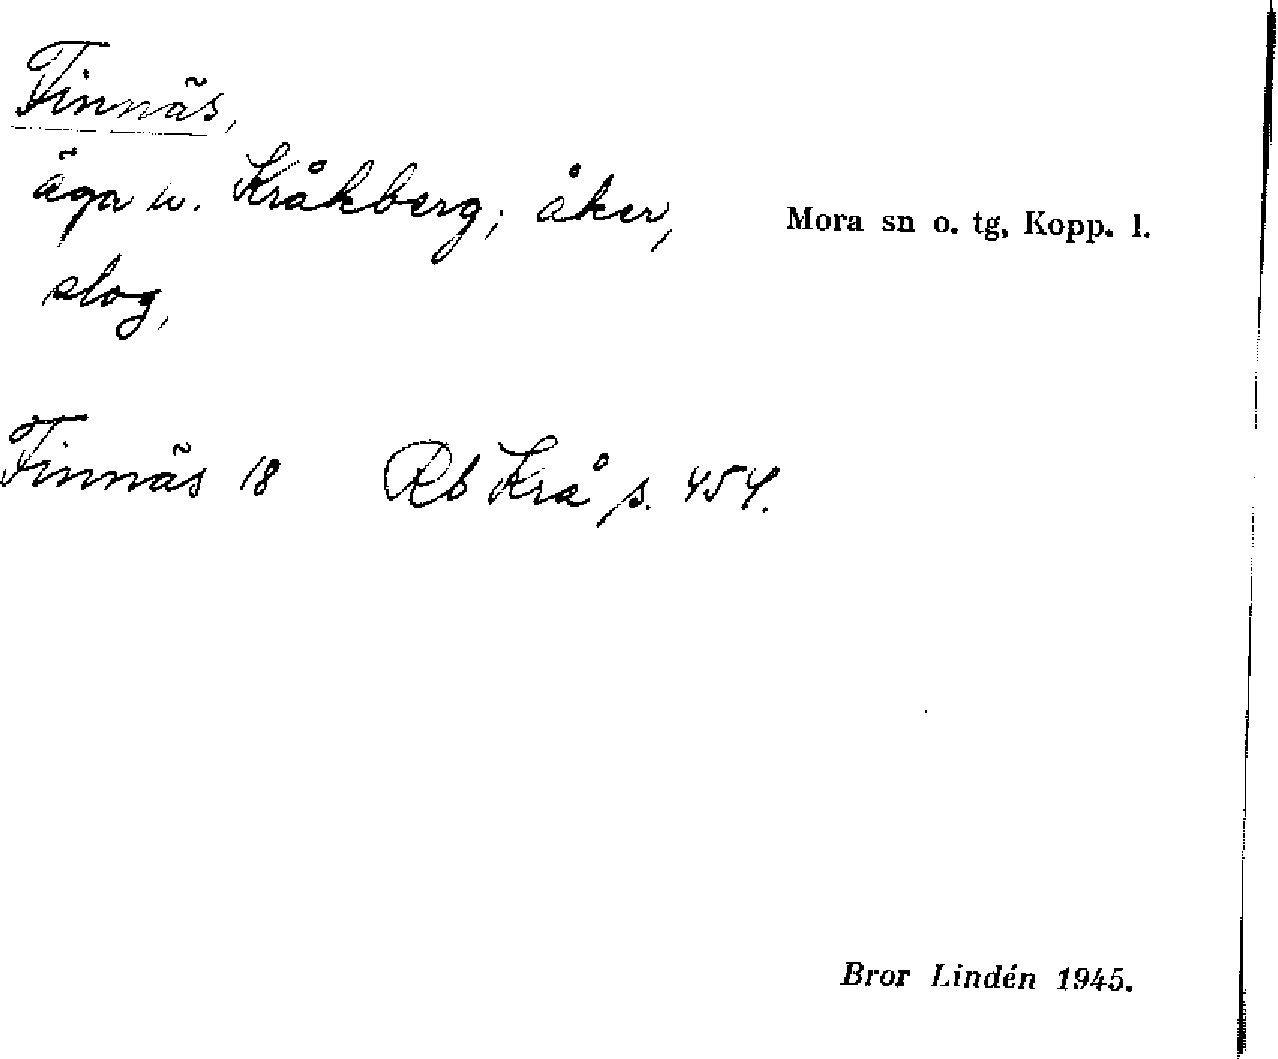 Finnäs,
äga u. Kråkberg; åker,
slog,
Mora sn o. tg, Kopp. l.
Finnäs 18 Rb Krå s. 454.
Bror Lindén 1945.